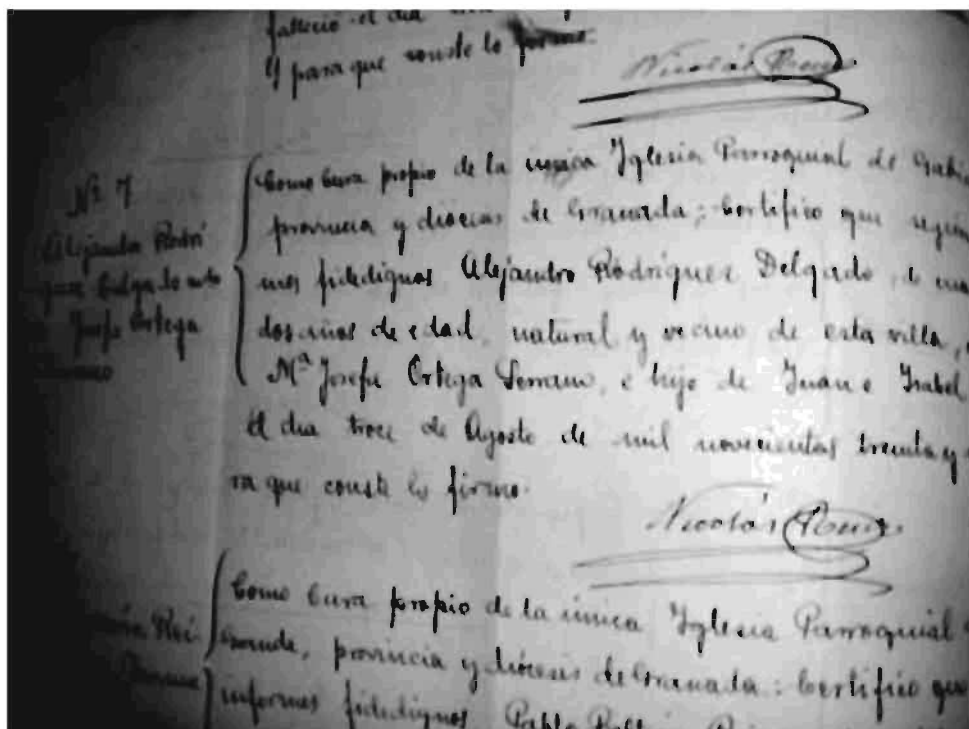 falleció el dia
y para que conste lo firmo.
Nicolás Ruiz
Nº 7
Alejandro Rodrí
guez Delgado
Josefa Ortega
Como Cura propio de la única Yglesia Parroquial de Gabia
provincia y diócesis de Granada; Certifico que
fidedignos Alejandro Rodriguez Delgado, de
dos años de edad, natural y vecino de esta villa,
Mª Josefa Ortega Serrano, e hijo de Juan e Isabel
el dia trece de Agosto de mil novecientos treinta y
ra que conste lo firmo.
Nicolás Ruiz
Como Cura propio de la única Yglesia Parroquial
Grande, provincia y diócesis de Granada: Certifico que
informes fidedignos Pablo